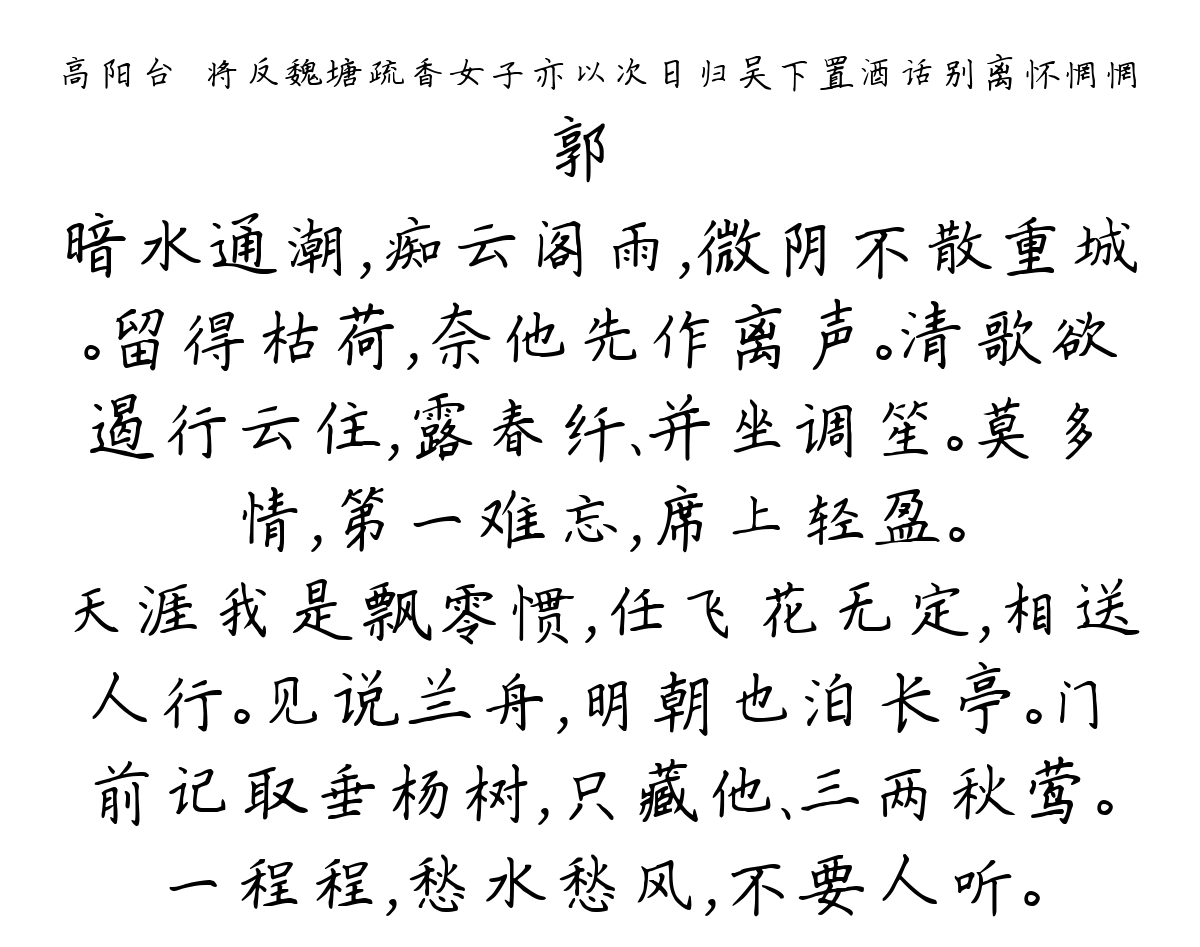 高阳台 将反魏塘疏香女子亦以次日归吴下置酒话别离怀惘惘
郭
暗水通潮,痴云阁雨,微阴不散重城
。留得枯荷,奈他先作离声。清歌欲
遏行云住,露春纤、并坐调笙。莫多
情,第一难忘,席上轻盈。
天涯我是飘零惯,任飞花无定,相送
人行。见说兰舟,明朝也泊长亭。门
前记取垂杨树,只藏他、三两秋莺。
一程程,愁水愁风,不要人听。